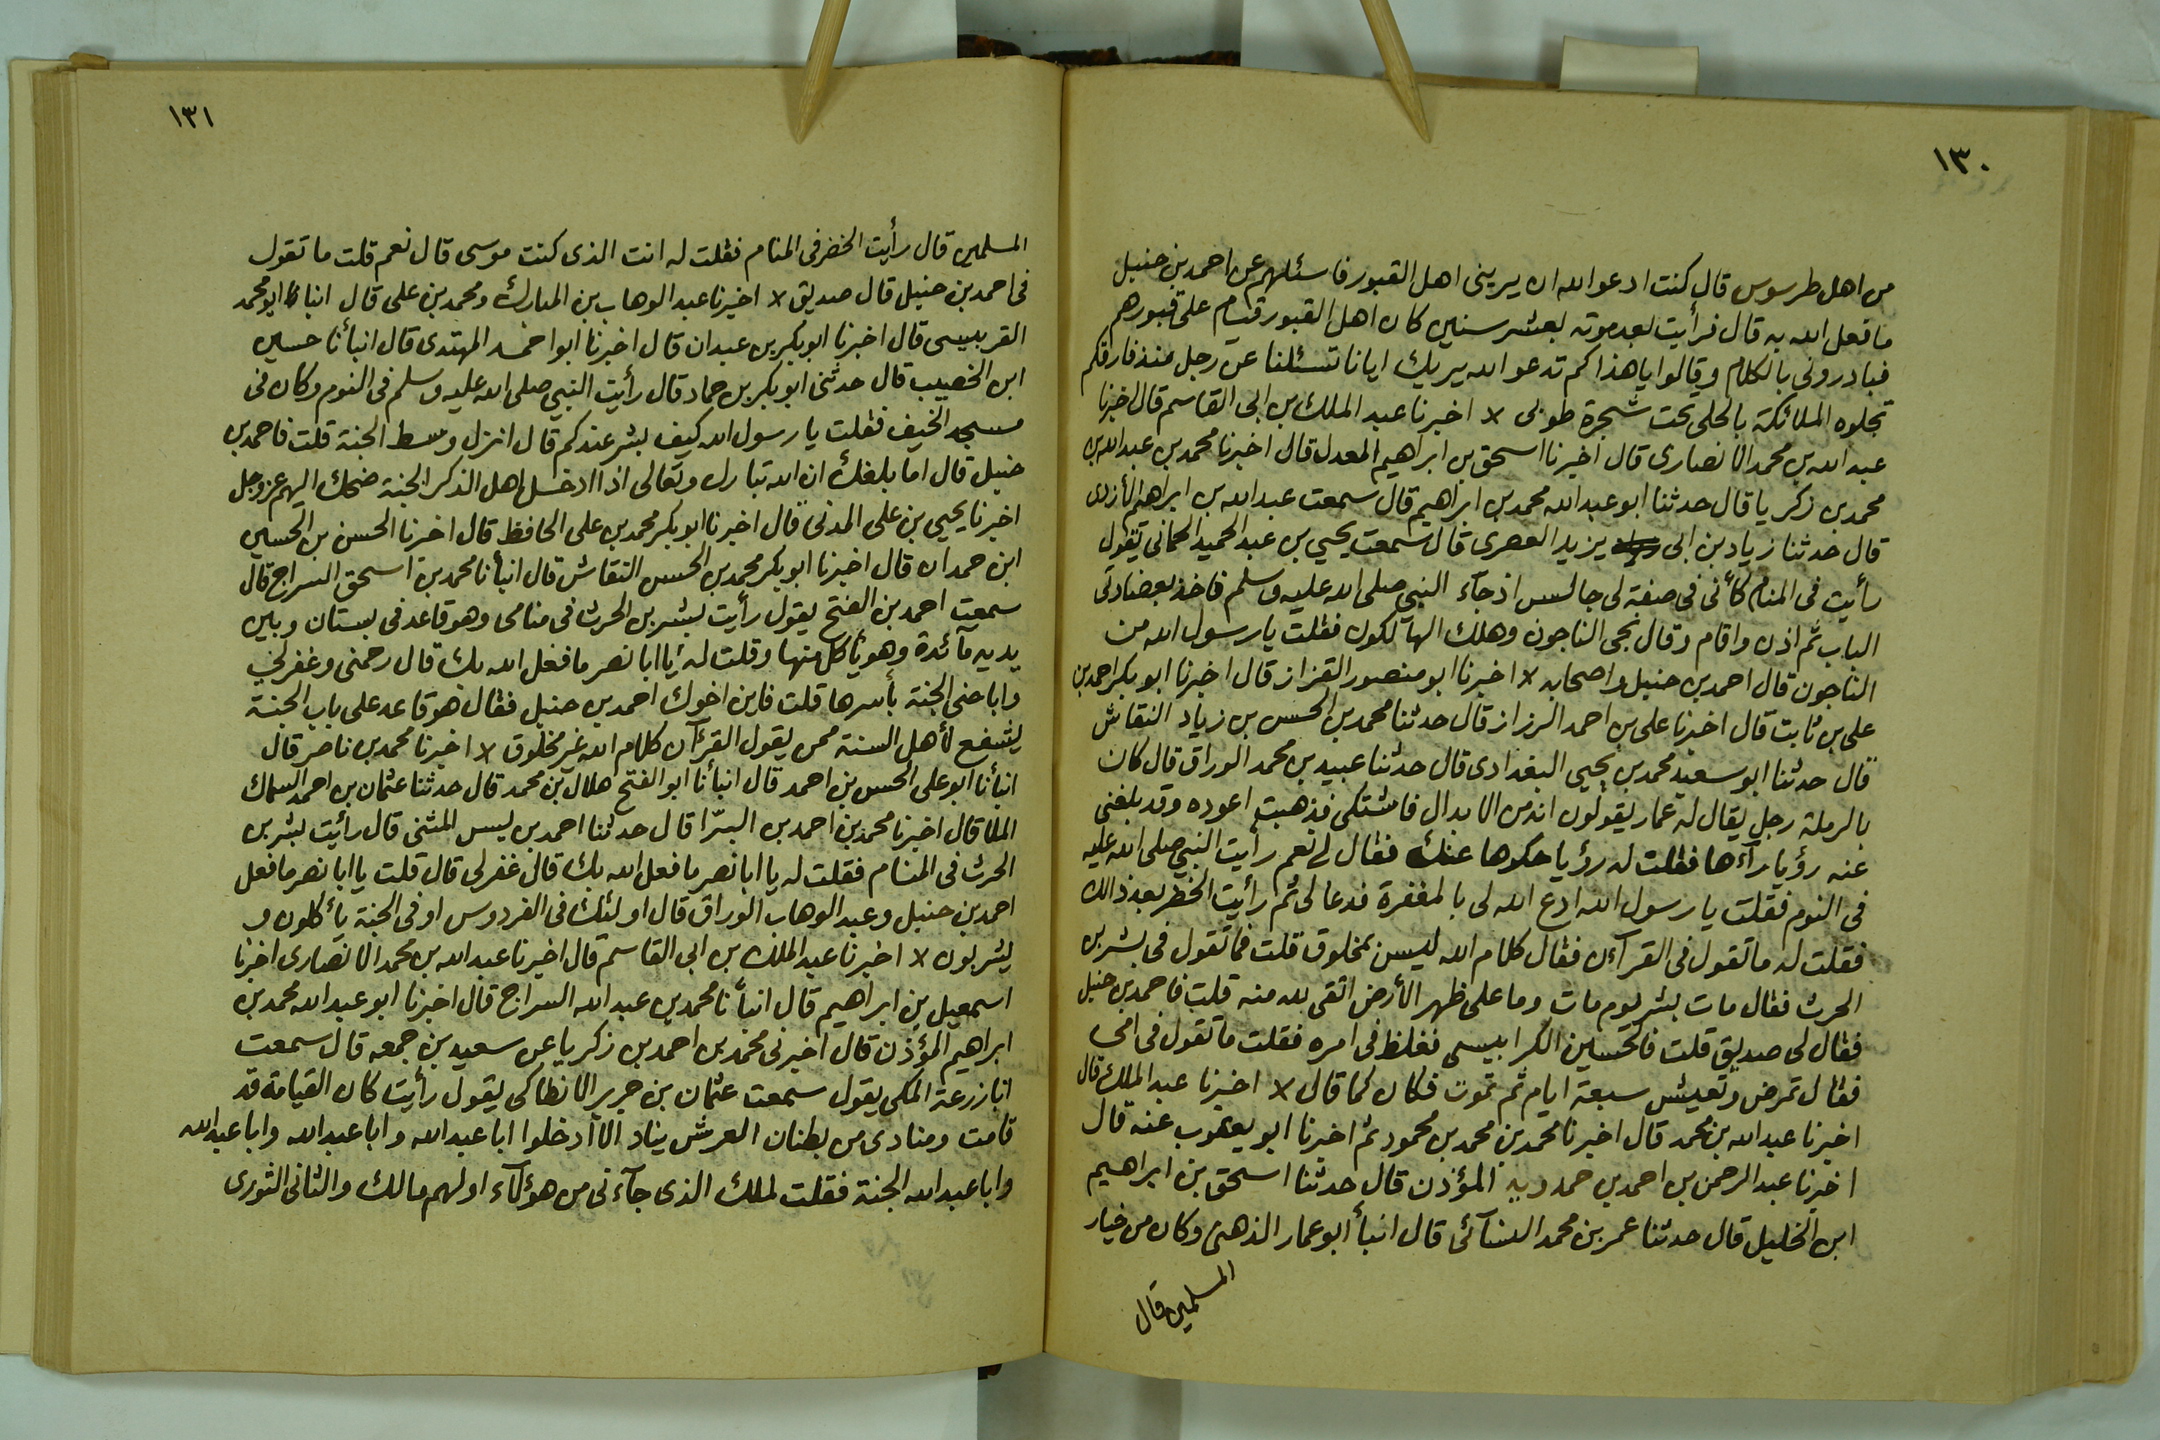 ١٣٠
من اهل طرسوس قال كنت ادعو الله ان يريني اهل القبور فاسئلهم عن احمد بن حنبل
ما فعل الله به قال فرأيت بعد موته بعشر سنين كان اهل القبور قيام على قبورهم
فبادروني بالكلام وقالوا يا هذا كم تدعو الله يريك ايانا تسئلنا عن رجل منذ فارقكم
تجلوه الملائكة بالحلى تحت شجرة طوبى لا اخبرنا عبد الملك بن ابى القاسم قال اخبرنا
عبد الله بن محمد الانصارى قال اخبرنا اسحق بن ابراهيم المعدل قال اخبرنا محمد بن عبد الله بن
محمد بن زكريا قال حدثنا ابو عبد الله محمد بن ابراهيم قال سمعت عبد الله بن ابراهيم الأزدى
قال حدثنا زياد بن ابى يزيد العصرى قال سمعت يحيى بن عبد الحميد الحمانى يقول
رأيت فى المنام كأنى فى صفة لى جالس اذ جآء النبى صلى الله عليه وسلم فاخذ بعضادتى
الباب ثم اذن واقام وقال نجى الناجون وهلك الهآلكون فقلت يا رسول الله من
الناجون قال احمد بن حنبل واصحابه لا اخبرنا ابو منصور القزاز قال اخبرنا ابو بكر احمد بن
على بن ثابت قال اخبرنا على بن احمد الرزاز قال حدثنا محمد بن الحسن بن زياد النقاش
قال حدثنا ابو سعيد محمد بن يحيى البغدادى قال حدثنا عبيد بن محمد الوراق قال كان
بالرملة رجل يقال له عمار يقولون انه من الابدال فاشتكى فذهبت اعوده وقد بلغنى
عنه رؤيا رآءها فقلت له رؤيا حكوها عنك فقال لى نعم رأيت النبى صلى الله عليه
فى النوم فقلت يا رسول الله ادع الله لى بالمغفرة فدعا لى ثم رأيت الخضر بعد ذالك
فقلت له ما تقول فى القرآن فقال كلام الله ليس بمخلوق قلت فما تقول فى بشر بن
الحرث فقال مات بشر يوم مات وما على ظهر الأرض اتقى لله منه قلت فاحمد بن حنبل
فقال لى صديق قلت فالحسين الكرابيسى فغلظ فى امره فقلت ما تقول فى امى
فقال تمرض وتعيش سبعة ايام ثم تموت فكان كما قال لا اخبرنا عبد الملك قال
اخبرنا عبد الله بن محمد قال اخبرنا محمد بن محمد بن محمود ثم اخبرنا ابو يعقوب عنه قال
اخبرنا عبد الرحمن بن احمد بن حمدويه المؤذن قال حدثنا اسحق بن ابراهيم
ابن الخليل قال حدثنا عمر بن محمد النسآئى قال انبأ ابو عمار الذهبى وكان من خيار
المسلمين قال
١٣١
المسلمين قال رأيت الخضر فى المنام فقلت له انت الذى كنت موسى قال نعم قلت ما تقول
فى احمد بن حنبل قال صديق لا اخبرنا عبد الوهاب بن المبارك ومحمد بن على قال انبا ابو محمد
القربيسى قال اخبرنا ابو بكر بن عبدان قال اخبرنا ابو احمد المهتدى قال انبأنا حسين
ابن الخصيب قال حدثنى ابو بكر بن حماد قال رأيت النبى صلى الله عليه وسلم فى النوم وكان فى
مسجد الخيف فقلت يا رسول الله كيف بشر عندكم قال انزل وسط الجنة قلت فاحمد بن
حنبل قال اما بلغك ان الله تبارك وتعالى اذا ادخل اهل الذكر الجنة ضحك اليهم عز وجل
اخبرنا يحيى بن على المدنى قال اخبرنا ابو بكر محمد بن على الحافظ قال اخبرنا الحسن بن الحسين
ابن حمدان قال اخبرنا ابو بكر محمد بن الحسن النقاش قال انبأنا محمد بن اسحق السراج قال
سمعت احمد بن الفتح يقول رأيت بشر بن الحرث فى منامى وهو قاعد فى بستان وبين
يديه مآئدة وهو يأكل منها وقلت له يا ابا نصر ما فعل الله بك قال رحمنى وغفر لى
واباحنى الجنة بأسرها قلت فاين اخوك احمد بن حنبل فقال هو قاعد على باب الجنة
يشفع لأهل السنة ممن يقول القرآن كلام الله غير مخلوق لا اخبرنا محمد بن ناصر قال
انبأنا ابو على الحسن بن احمد قال انبأنا ابو الفتح هلال بن محمد قال حدثنا عثمان بن احمد السماك
املا قال اخبرنا محمد بن احمد بن البرّا قال حدثنا احمد بن ليس المثنى قال رأيت بشر بن
الحرث فى المنام فقلت له يا ابا نصر ما فعل الله بك قال غفر لى قال قلت يا ابا نصر ما فعل
احمد بن حنبل وعبد الوهاب الوراق قال اولئك فى الفردوس او فى الجنة يأكلون و
يشربون لا اخبرنا عبد الملك بن ابى القاسم قال اخبرنا عبد الله بن محمد الانصارى اخبرنا
اسمعيل بن ابراهيم قال انبأنا محمد بن عبد الله السراج قال اخبرنا ابو عبد الله محمد بن
ابراهيم المؤذن قال اخبرنى محمد بن احمد بن زكريا عن سعيد بن جمعه قال سمعت
ابا زرعة المكى يقول سمعت عثمان بن جرير الانطاكى يقول رأيت كان القيامة قد
قامت ومنادى من بطنان العرش يناد الا أدخلوا ابا عبد الله وابا عبد الله وابا عبد الله
وابا عبد الله الجنة فقلت لملك الذى جآءنى من هؤلآء اولهم مالك والثانى الثورى